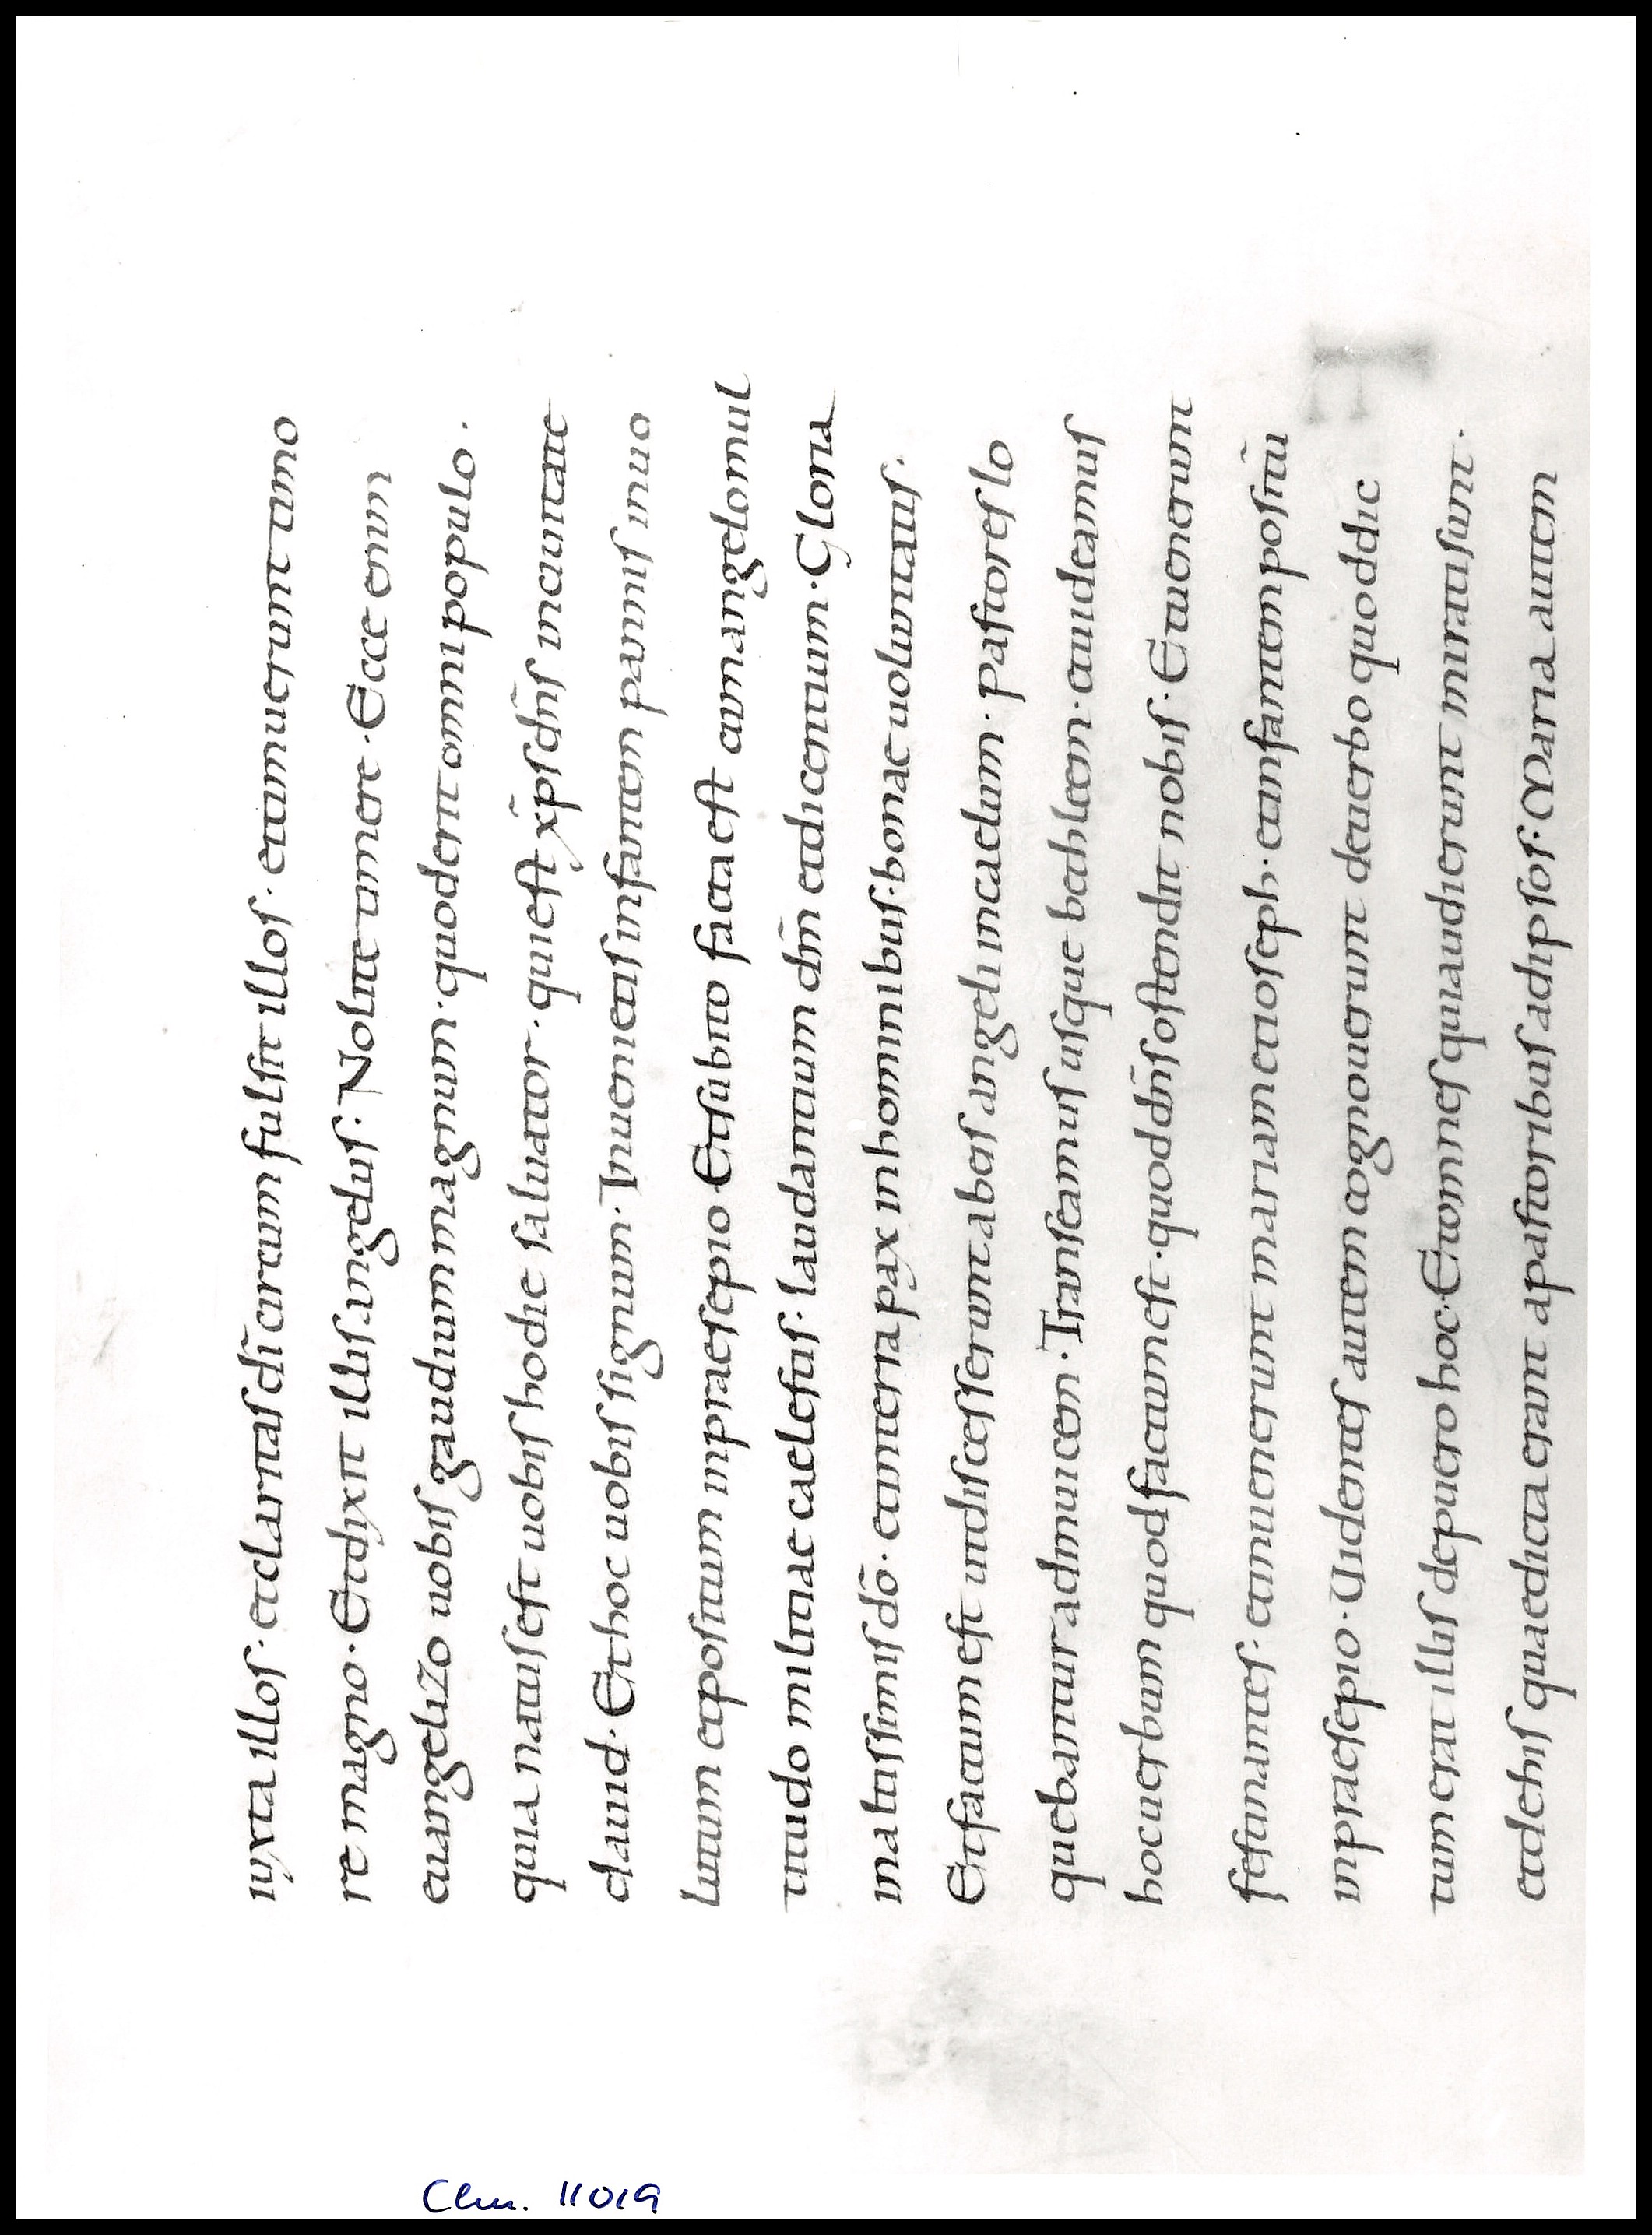 iuxta illos · et claritas dī circum fulsit illos · et timuerunt timo
re magno · Et dixit illis angelus : Nolite timere · Ecce enim
euangelizo uobis gaudium magnum · quod erit omni populo ·
quia natus est uobis hodie saluator · qui est xp̄s dn̄s in ciuitate
dauid · Et hoc uobis signum · Inuenietis infantem pannis inuo
lutum et positum in praesepio · Et subito facta est cum angelo mul
titudo militiae caelestis · laudantium dm̄ et dicentium · Gloria
in altissimis dō · et in terra pax in hominibus · bonae uoluntatis ·
Et factum est ut discesserunt ab eis angeli in caelum · pastores lo
quebantur ad inuicem · Transeamus usque bethleem · et uideamus
hoc uerbum quod factum est · quod dn̄s ostendit nobis · Et uenerunt
festinantes · et inuenerunt mariam et ioseph · et infantem positū
in praesepio · Uidentes autem cognouerunt de uerbo quod dic
tum erat illis de puero hoc · Et omnes qui audierunt mirati sunt ·
et de his quae dicta erant a pastoribus ad ipsos · Maria autem
Clm. 11019